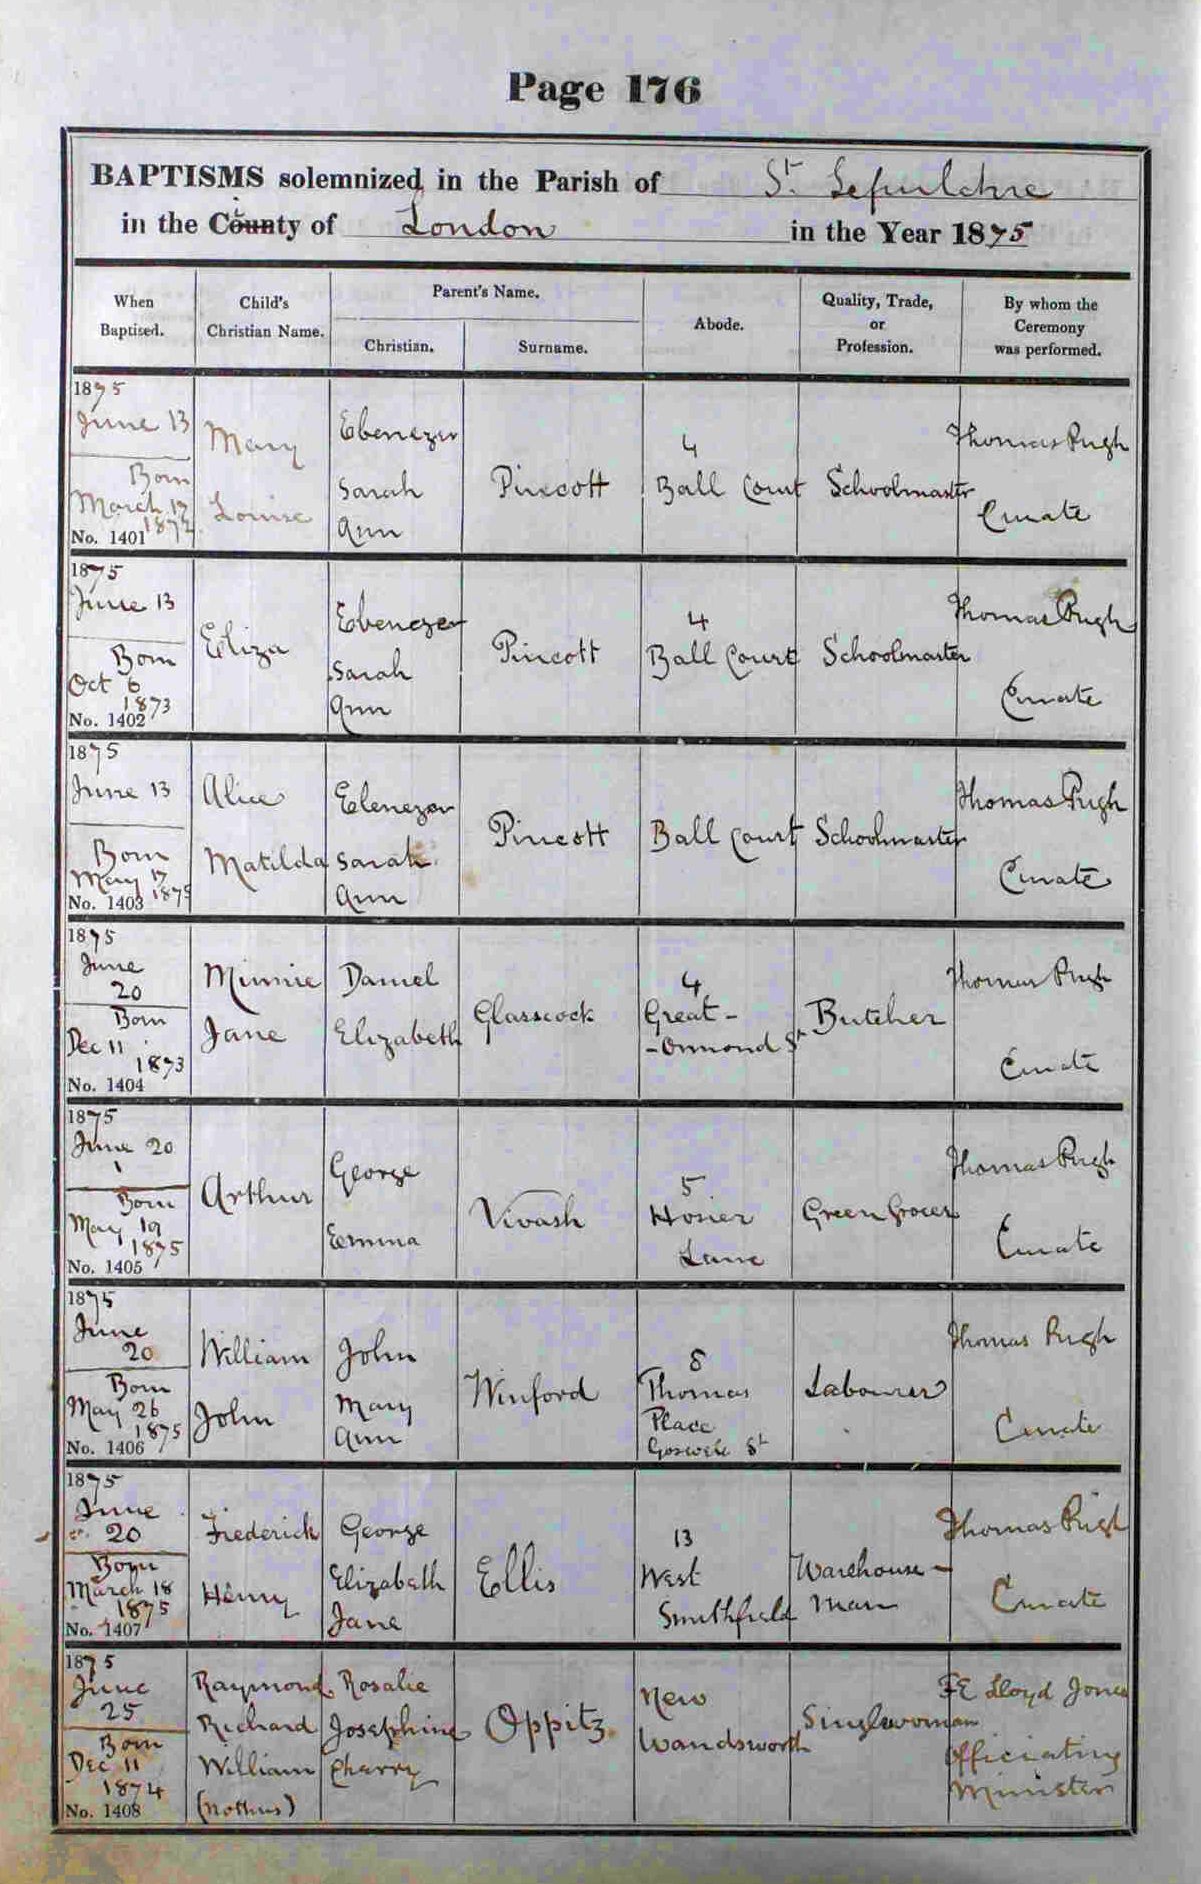 Page 176
BAPTISMS solemnized in the Parish of St. Sepulchre
in the County of London in the Year 1875
When Baptised. Child's Christian Name. Parent's Name. Christian. Surname. Abode. Quality, Trade, or Profession. By whom the Ceremony was performed.
1875
June 13
Born
March 17
1872
No. 1401
Mary
Louise
Ebenezer
Sarah
Ann
Pincott
4
Ball Court
Schoolmaster
Thomas Pugh
Curate
1875
June 13
Born
Oct 6
1873
No. 1402
Eliza
Ebenezer
Sarah
Ann
Pincott
4
Ball Court
Schoolmaster
Thomas Pugh
Curate
1875
June 13
Born
May 17
1875
No. 1403
Alice
Matilda
Ebenezer
Sarah
Ann
Pincott
Ball Court
Schoolmaster
Thomas Pugh
Curate
1875
June
20
Born
Dec 11
1873
No. 1404
Minnie
Jane
Daniel
Elizabeth
Glasscock
4
Great-
-Ormond St
Butcher
Thomas Pugh
Curate
1875
June 20
Born
May 19
1875
No. 1405
Arthur
George
Emma
Vivash
5
Hosier
Lane
Green Grocer
Thomas Pugh
Curate
1875
June
20
Born
May 26
1875
No. 1406
William
John
John
Mary
Ann
Winford
8
Thomas
Place
Goswell St
Labourer
Thomas Pugh
Curate
1875
June
20
Born
March 18
1875
No. 1407
Frederick
Henry
George
Elizabeth
Jane
Ellis
13
West
Smithfield
Warehouse-
man
Thomas Pugh
Curate
1875
June
25
Born
Dec 11
1874
No. 1408
Raymond
Richard
William
(nothus)
Rosalie
Josephine
Cherry
Oppitz
New
Wandsworth
Singlewoman
FE Lloyd Jones
Officiating
Minister